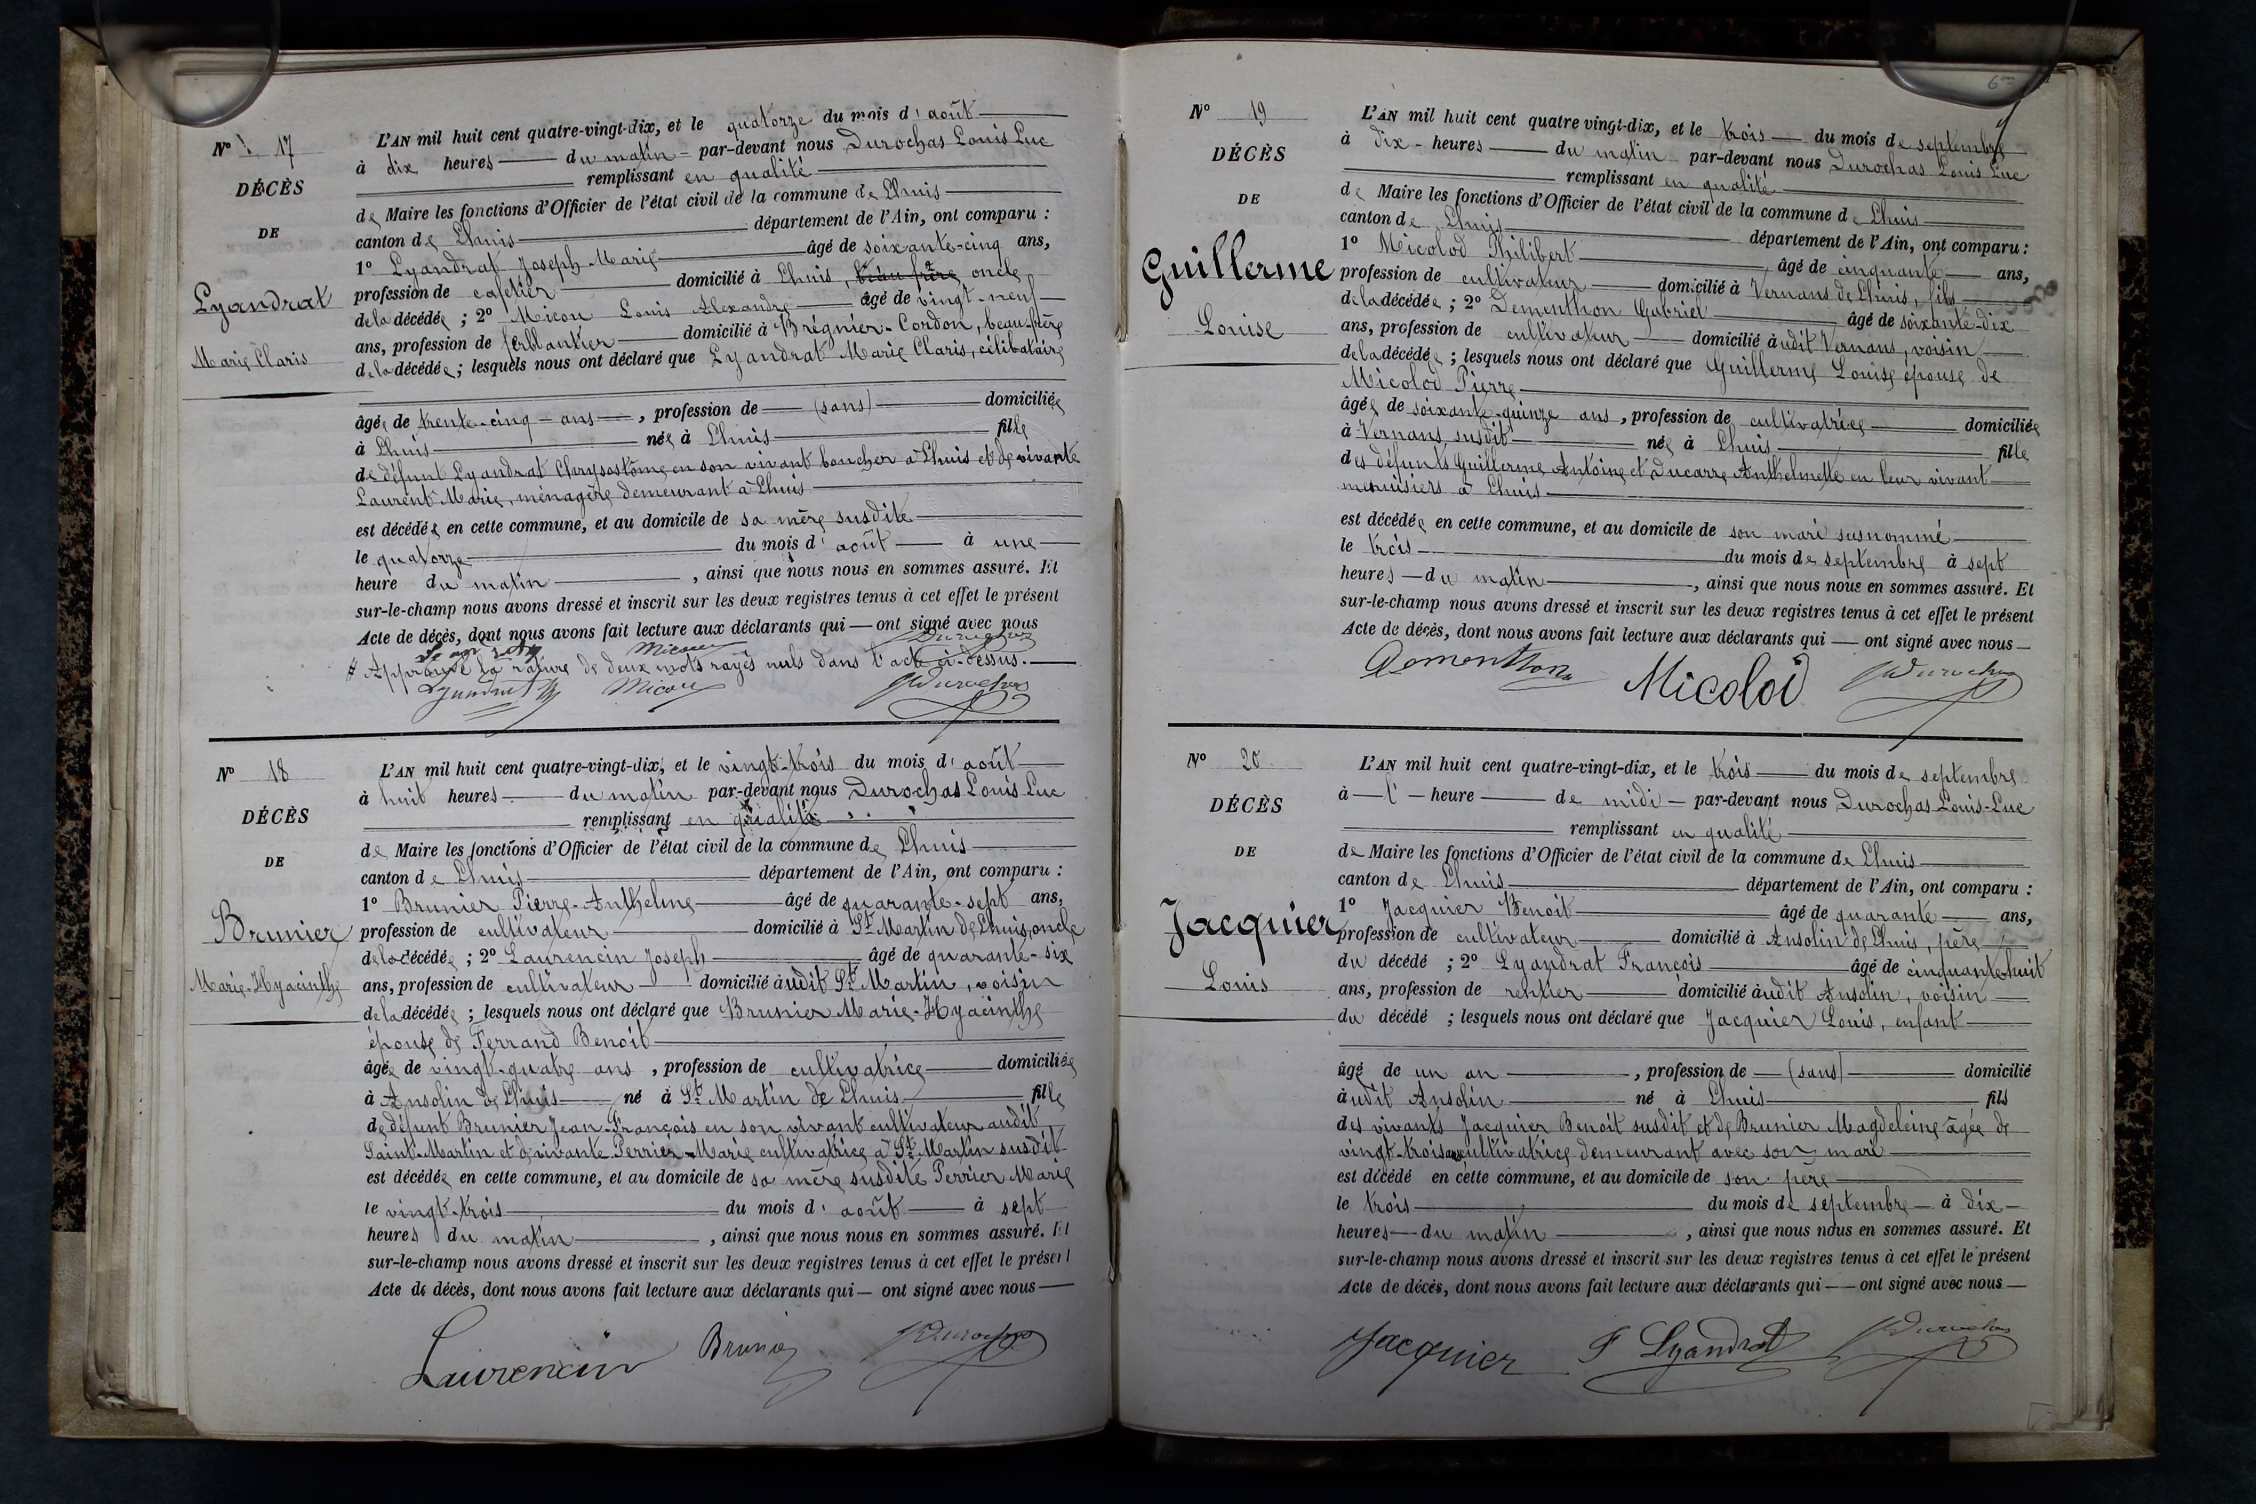 Nº 17
DÉCÈS
DE
Lyandrat
Marie Claris
L'AN mil huit cent quatre-vingt-dix, et le quatorze du mois d'août
à dix heures du matin par-devant nous Durochas Louis Luc
remplissant en qualité
de Maire les fonctions d'Officier de l'état civil de la commune de Lhuis
canton de Lhuis département de l'Ain, ont comparu :
1º Lyandrat Joseph-Marie âgé de soixante-cinq ans,
profession de cafetier domicilié à Lhuis, beau frère oncle
de la décédée ; 2º Micou Louis Alexandre âgé de vingt-neuf
ans, profession de ferblantier domicilié à Brégnier-Cordon, beau-frère
de la décédée ; lesquels nous ont déclaré que Lyandrat Marie Claris, célibataire
âgée de trente-cinq ans, profession de (sans) domiciliée
à Lhuis née à Lhuis fille
de défunt Lyandrat Chrysostôme en son vivant boucher à Lhuis et de vivante
Laurent Marie, ménagère demeurant à Lhuis
est décédée en cette commune, et au domicile de sa mère susdite
le quatorze du mois d'août à une
heure du matin, ainsi que nous nous en sommes assuré. Et
sur-le-champ nous avons dressé et inscrit sur les deux registres tenus à cet effet le présent
Acte de décès, dont nous avons fait lecture aux déclarants qui ont signé avec nous
Micou Durochas
# Approuvé la rature de deux mots rayés nuls dans l'acte ci-dessus.
Lyandrat Micou Durochas
Nº 18
DÉCÈS
DE
Brunier
Marie-Hyacinthe
L'AN mil huit cent quatre-vingt-dix, et le vingt-trois du mois d'août
à huit heures du matin par-devant nous Durochas Louis Luc
remplissant en qualité
de Maire les fonctions d'Officier de l'état civil de la commune de Lhuis
canton de Lhuis département de l'Ain, ont comparu :
1º Brunier Pierre-Anthelme âgé de quarante-sept ans,
profession de cultivateur domicilié à St Martin de Lhuis, oncle
de la décédée ; 2º Laurencin Joseph âgé de quarante-six
ans, profession de cultivateur domicilié audit St Martin, voisin
de la décédée ; lesquels nous ont déclaré que Brunier Marie-Hyacinthe
épouse de Ferrand Benoit
âgée de vingt-quatre ans, profession de cultivatrice domiciliée
à Ansolin de Lhuis né à St Martin de Lhuis fille
de défunt Brunier Jean-François en son vivant cultivateur audit
Saint-Martin et de vivante Perrier Marie cultivatrice à St Martin susdit
est décédée en cette commune, et au domicile de sa mère susdite Perrier Marie
le vingt-trois du mois d'août à sept
heures du matin, ainsi que nous nous en sommes assuré. Et
sur-le-champ nous avons dressé et inscrit sur les deux registres tenus à cet effet le présent
Acte de décès, dont nous avons fait lecture aux déclarants qui ont signé avec nous
Laurencin Brunier Durochas
Nº 19
DÉCÈS
DE
Guillerme
Louise
L'AN mil huit cent quatre vingt-dix, et le trois du mois de septembre
à dix heures du matin par-devant nous Durochas Louis Luc
remplissant en qualité
de Maire les fonctions d'Officier de l'état civil de la commune de Lhuis
canton de Lhuis département de l'Ain, ont comparu :
1º Micolod Philibert âgé de cinquante ans,
profession de cultivateur domicilié à Vernans de Lhuis, fils
de la décédée ; 2º Dementhon Gabriel âgé de soixante-dix
ans, profession de cultivateur domicilié audit Vernans, voisin
de la décédée ; lesquels nous ont déclaré que Guillerme Louise épouse de
Micolod Pierre
âgée de soixante-quinze ans, profession de cultivatrice domiciliée
à Vernans susdit née à Lhuis fille
des défunts Guillerme Antoine et Ducarre Anthelmette en leur vivant
menuisiers à Lhuis
est décédée en cette commune, et au domicile de son mari susnommé
le trois du mois de septembre à sept
heures du matin, ainsi que nous nous en sommes assuré. Et
sur-le-champ nous avons dressé et inscrit sur les deux registres tenus à cet effet le présent
Acte de décès, dont nous avons fait lecture aux déclarants qui ont signé avec nous
Dementhon Micolod Durochas
Nº 20
DÉCÈS
DE
Jacquier
Louis
L'AN mil huit cent quatre-vingt-dix, et le trois du mois de septembre
à l' heure de midi par-devant nous Durochas Louis-Luc
remplissant en qualité
de Maire les fonctions d'Officier de l'état civil de la commune de Lhuis
canton de Lhuis département de l'Ain, ont comparu :
1º Jacquier Benoit âgé de quarante ans,
profession de cultivateur domicilié à Ansolin de Lhuis, père
du décédé ; 2º Lyandrat François âgé de cinquante-huit
ans, profession de rentier domicilié audit Ansolin, voisin
du décédé ; lesquels nous ont déclaré que Jacquier Louis, enfant
âgé de un an, profession de (sans) domicilié
audit Ansolin né à Lhuis fils
des vivants Jacquier Benoit susdit et de Brunier Magdeleine âgée de
vingt-trois ans cultivatrice demeurant avec son mari
est décédé en cette commune, et au domicile de son père
le trois du mois de septembre à dix
heures du matin, ainsi que nous nous en sommes assuré. Et
sur-le-champ nous avons dressé et inscrit sur les deux registres tenus à cet effet le présent
Acte de décès, dont nous avons fait lecture aux déclarants qui ont signé avec nous
Jacquier F Lyandrat Durochas